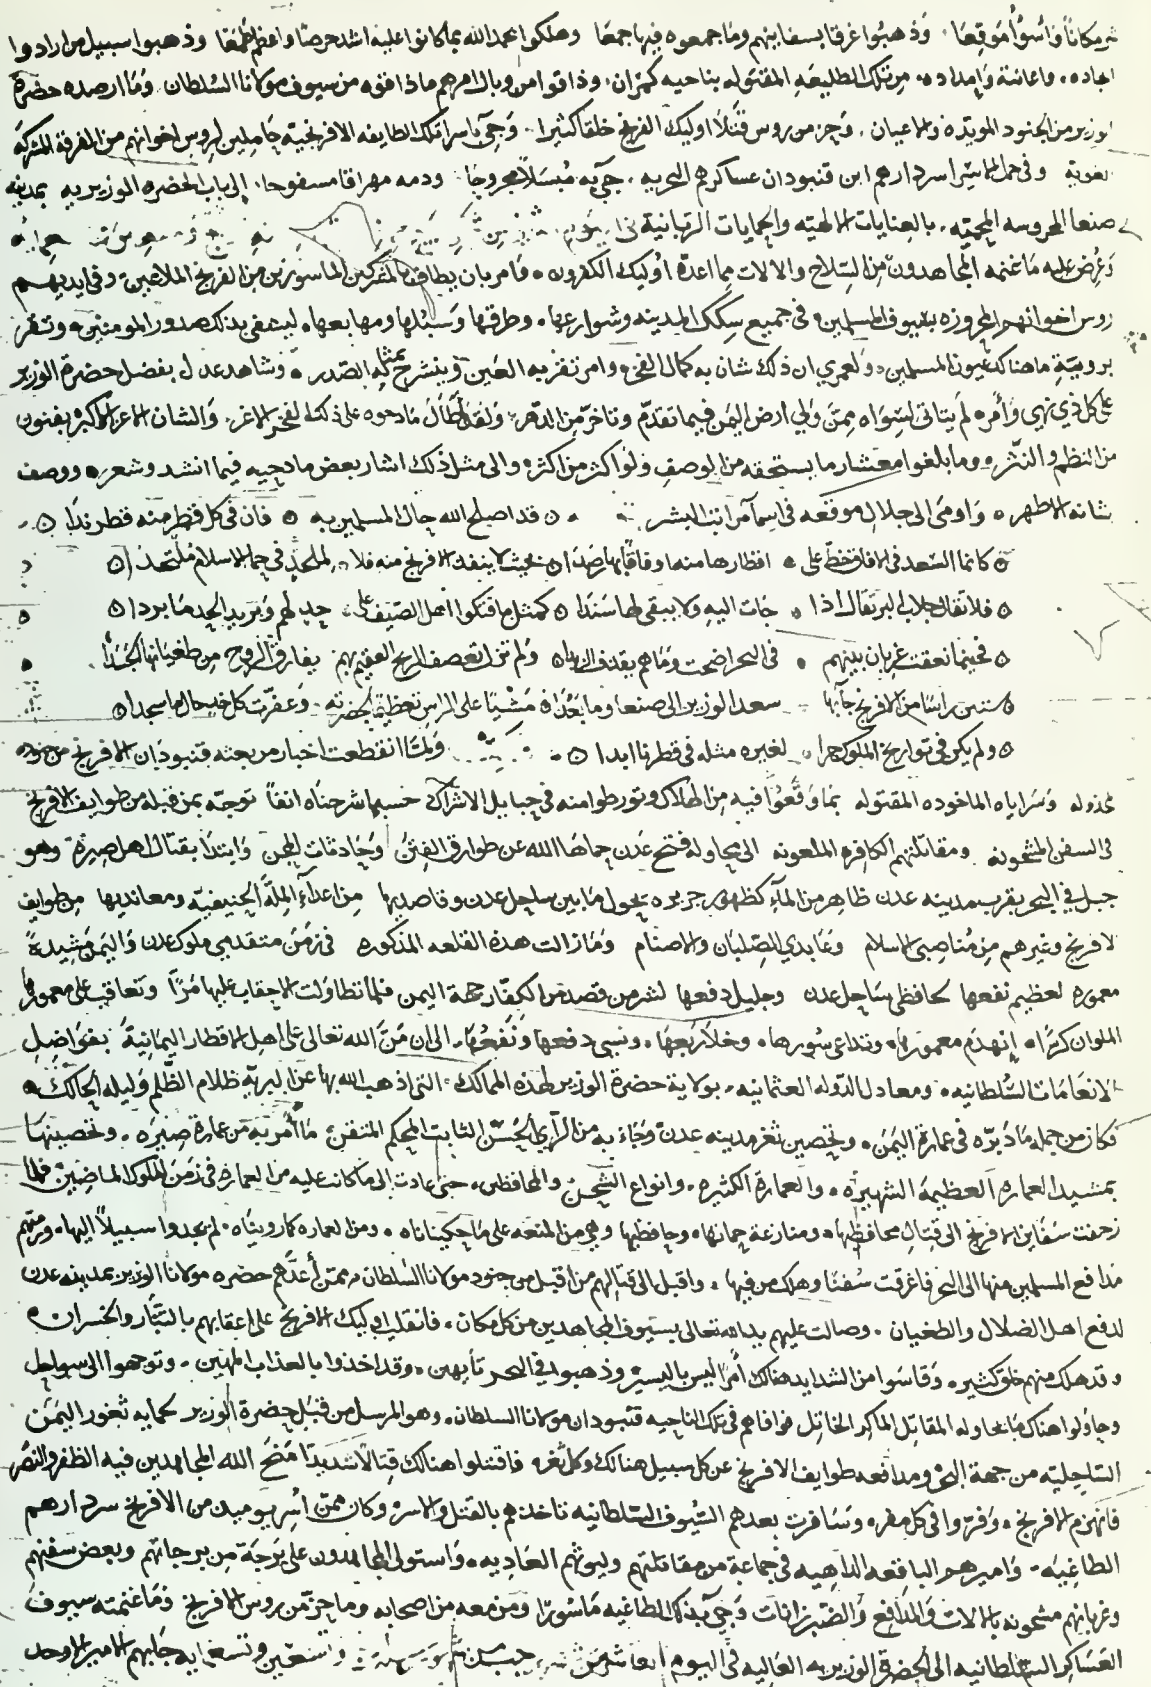 شر مكانا وأسوأ موقعا وذهبوا غرقا بسفاينهم وما جمعوه فيها جمعا وهلكوا بحمد الله بما كانوا عليه اشد حرصا واعظم طمعا وذهبوا سبيل من ارادوا
وامداده من تلك الطليعه المقتوله بناحيه كمران وذاقوا من وبال امرهم ماذا قوه من سيوف مولانا السلطان وما ارصده حضرة
الوزير من الجنود المويده والاعيان وجز من روس قتلا اوليك الفرنج خلقا كثيرا وجي باسرا تلك الطايفه الافرنجيه حاملين لروس اخوانهم من الفرقة المشركه
وفي جمل الاسرا سردارهم ابن قنبودان عساكرهم البحريه جي به مجروحا ودمه مهراقا مسفوحا الى باب الحضره الوزيريه بمدينه
صنعا المحروسه المحميه بالعنايات الالهيه والحمايات الربانية
وعرض عليه ما غنمه المجاهدون من السلاح والالات مما اعدة اوليك الكفرون وامر بان يطاف بالمشركين الماسورين من الفرنج الملاعين وفي ايديهم
روس اخوانهم المجروزه بسيوف المسلمين في جميع سكك المدينه وشوارعها وطرقها وسبلها ومهايعها ليشفى بذلك صدور المومنين وتقر
بروية ما هناك عيون المسلمين ولعمري ان ذلك شان به كمال الفخر وامر تقر به العين وينشرح بمثله الصدر وشاهد عدل بفضل حضرة الوزير
على كل ذي نهي وامر لم يتاتى لسواه ممن ولي ارض اليمن فيما تقدم وتاخر من الدهر ولقد اطال مادحوه على ذلك الفخر الاغر والشان الاعز الاكبر بفنون
من النظم والنثر وما بلغوا معشار ما يستحقه من الوصف ولو اكثر من اكثر والى مثل ذلك اشار بعض مادحيه فيما انشد وشعر ووصف
شانه الاطهر واومى الى جلال موقعه في اسما مراتب البشر قد اصلح الله حال المسلمين به فان في كل قطر منه قطر ندا
كانما السعد في الافاق خط على اقطارها منها وفاقا بها رصدا بحيث لا ينفد الافرنج منه فلا لملحد في حما الاسلام ملتحدا
فلا تقال جلاب البرتقال اذا جات اليه ولا يبقى لها سندا كمثل ما فتكوا اهل الصليف على جد لهم وبريد الجد ما بردا
فحيثما نعقت غربان بينهم في البحر اضحت وما هم يقذف الزبدا ولم تزل تعصف الريح العقيم بهم يفارق الروح من طغيانها الجسدا
ستين راسا من الافرنج جا بها سعد الوزير الى صنعا وما بعدا مشيا على الراس تعظيما لحضرته وعفرت كل خد حال ما سجدا
ولم يكن في تواريخ الملوك جرا لغيره مثله في قطرنا ابدا ولما انقطعت اخبار من بعثه قنبودان الافرنج من جنوده
المخذوله وسراياه الماخوده المقتوله بما وقعوا فيه من الهلاك وتورطوا منه في حبايل الاشراك حسبما شرحناه انفا توجه بمن قبله من طوايف الافرنج
في السفن المشحونه ومقاتلتهم الكافره الملعونه الى محاوله فتح عدن حماها الله عن طوارق الفتن وحادثات المحن وابتدا بقتال اهل صيرة وهو
جبل في البحر بقرب مدينه عدن ظاهر من الما كظهور جزيره يحول ما بين ساحل عدن وقاصديها من اعداء الملة الحنيفيه ومعانديها من طوايف
الافرنج وغيرهم من مناصبى الاسلام وعابدي الصلبان والاصنام وما زالت هذه القلعه المذكوره في زمن متقدمي ملوك عدن واليمن مشيدة
معموره لعظيم نفعها لحافظي ساحل عدن وجليل دفعها لشر من قصد من الكفار جهة اليمن فلما تطاولت الاحقاب عليها مرا وتعاقب على معمورها
الملوان كرا انهدم معمورها وتداعى سورها وخلا ربعها ونسي دفعها ونفعها الى ان من الله تعالى على اهل الاقطار اليمانية بفواضل
الانعامات السلطانيه ومعادل الدوله العثمانيه بولاية حضرة الوزير لهذه الممالك التى اذهب الله بها عن البريه ظلام الظلم وليله الحالك
فكان من جمله ما دبره في عمارة اليمن وتحصين ثغر مدينه عدن وجاء به من الراي الحسن الثابت المحكم المتقن ما امر به من عمارة صيره وتحصينها
بمشيد العماره العظيمة الشهيره والعمارة الكثيره وانواع الشحن والمحافظين حتى عادت الى ما كانت عليه من العماره في زمن الملوك الماضين فلما
زحفت سفاين الافرنج الى قتال محافظيها ومنازعة حماتها وحافظيها وهي من المنعه على ما حكيناه ومن العماره كما رويناه لم يجدوا سبيلا اليها ورمتهم
مدافع المسلمين منها الى البحر فاغرقت سفنا وهلك من فيها واقبل الى قتالهم من اقبل من جنود مولانا السلطان ممن اعدهم حضره مولانا الوزير بمدينه عدن
لدفع اهل الضلال والطغيان وصالت عليهم يد الله تعالى بسيوف المجاهدين من كل مكان فانقلب اوليك الافرنج على اعقابهم بالتبار والخسران
وقد هلك منهم خلق كثير وقاسوا من الشدايد هناك امرا ليس باليسير وذهبوا في البحر تايهين وقد اخذوا بالعذاب المهين وتوجهوا الى سواحل
وحاولوا هناك ما يحاوله المقاتل الماكر الخاتل فوافاهم في تلك الناحيه قنبودان مولانا السلطان وهو المرسل من قبل حضرة الوزير لحمايه ثغور اليمن
الساحليه من جهة البحر ومدافعه طوايف الافرنج عن كل سبيل هنالك وكل ثغر فاقتتلوا هنالك قتالا شديدا منح الله المجاهدين فيه الظفر والنصر
فانهزم الافرنج وفروا في كل مفر وسافرت بعدهم السيوف السلطانيه تاخذهم بالقتل والاسر وكان ممن اسر يوميد من الافرنج سردارهم
الطاغيه واميرهم الباقعه الداهيه في جماعة من مقاتلتهم وليوثهم العاديه واستولى المجاهدون على برجة من برجاتهم وبعض سفنهم
وغربانهم مشحونه بالالات والمدافع والضبزانات وجي بذلك الطاغيه ماسورا ومن معه من اصحابه وما جز من روس الافرنج وما غنمته سيوف
العساكر السلطانيه الى الحضرة الوزيريه العاليه في اليوم وتسعمايه جابهم الامير الاوحد